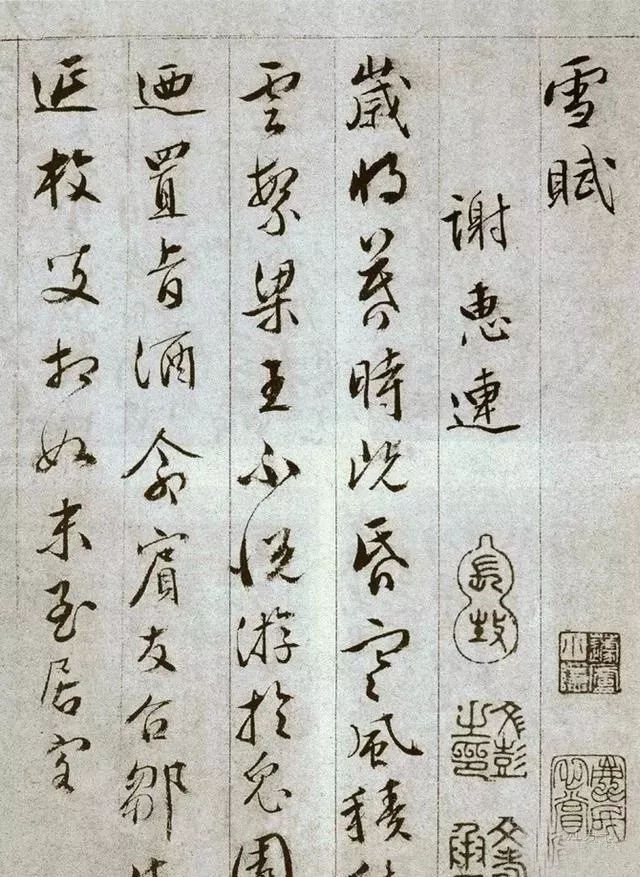 雪賦
謝惠連
文彭之印
歲將暮時既昏寒風積
雲繁梁王不悅游於兔園
迺置旨酒命賓友召鄒
延枚叟相如末至居客